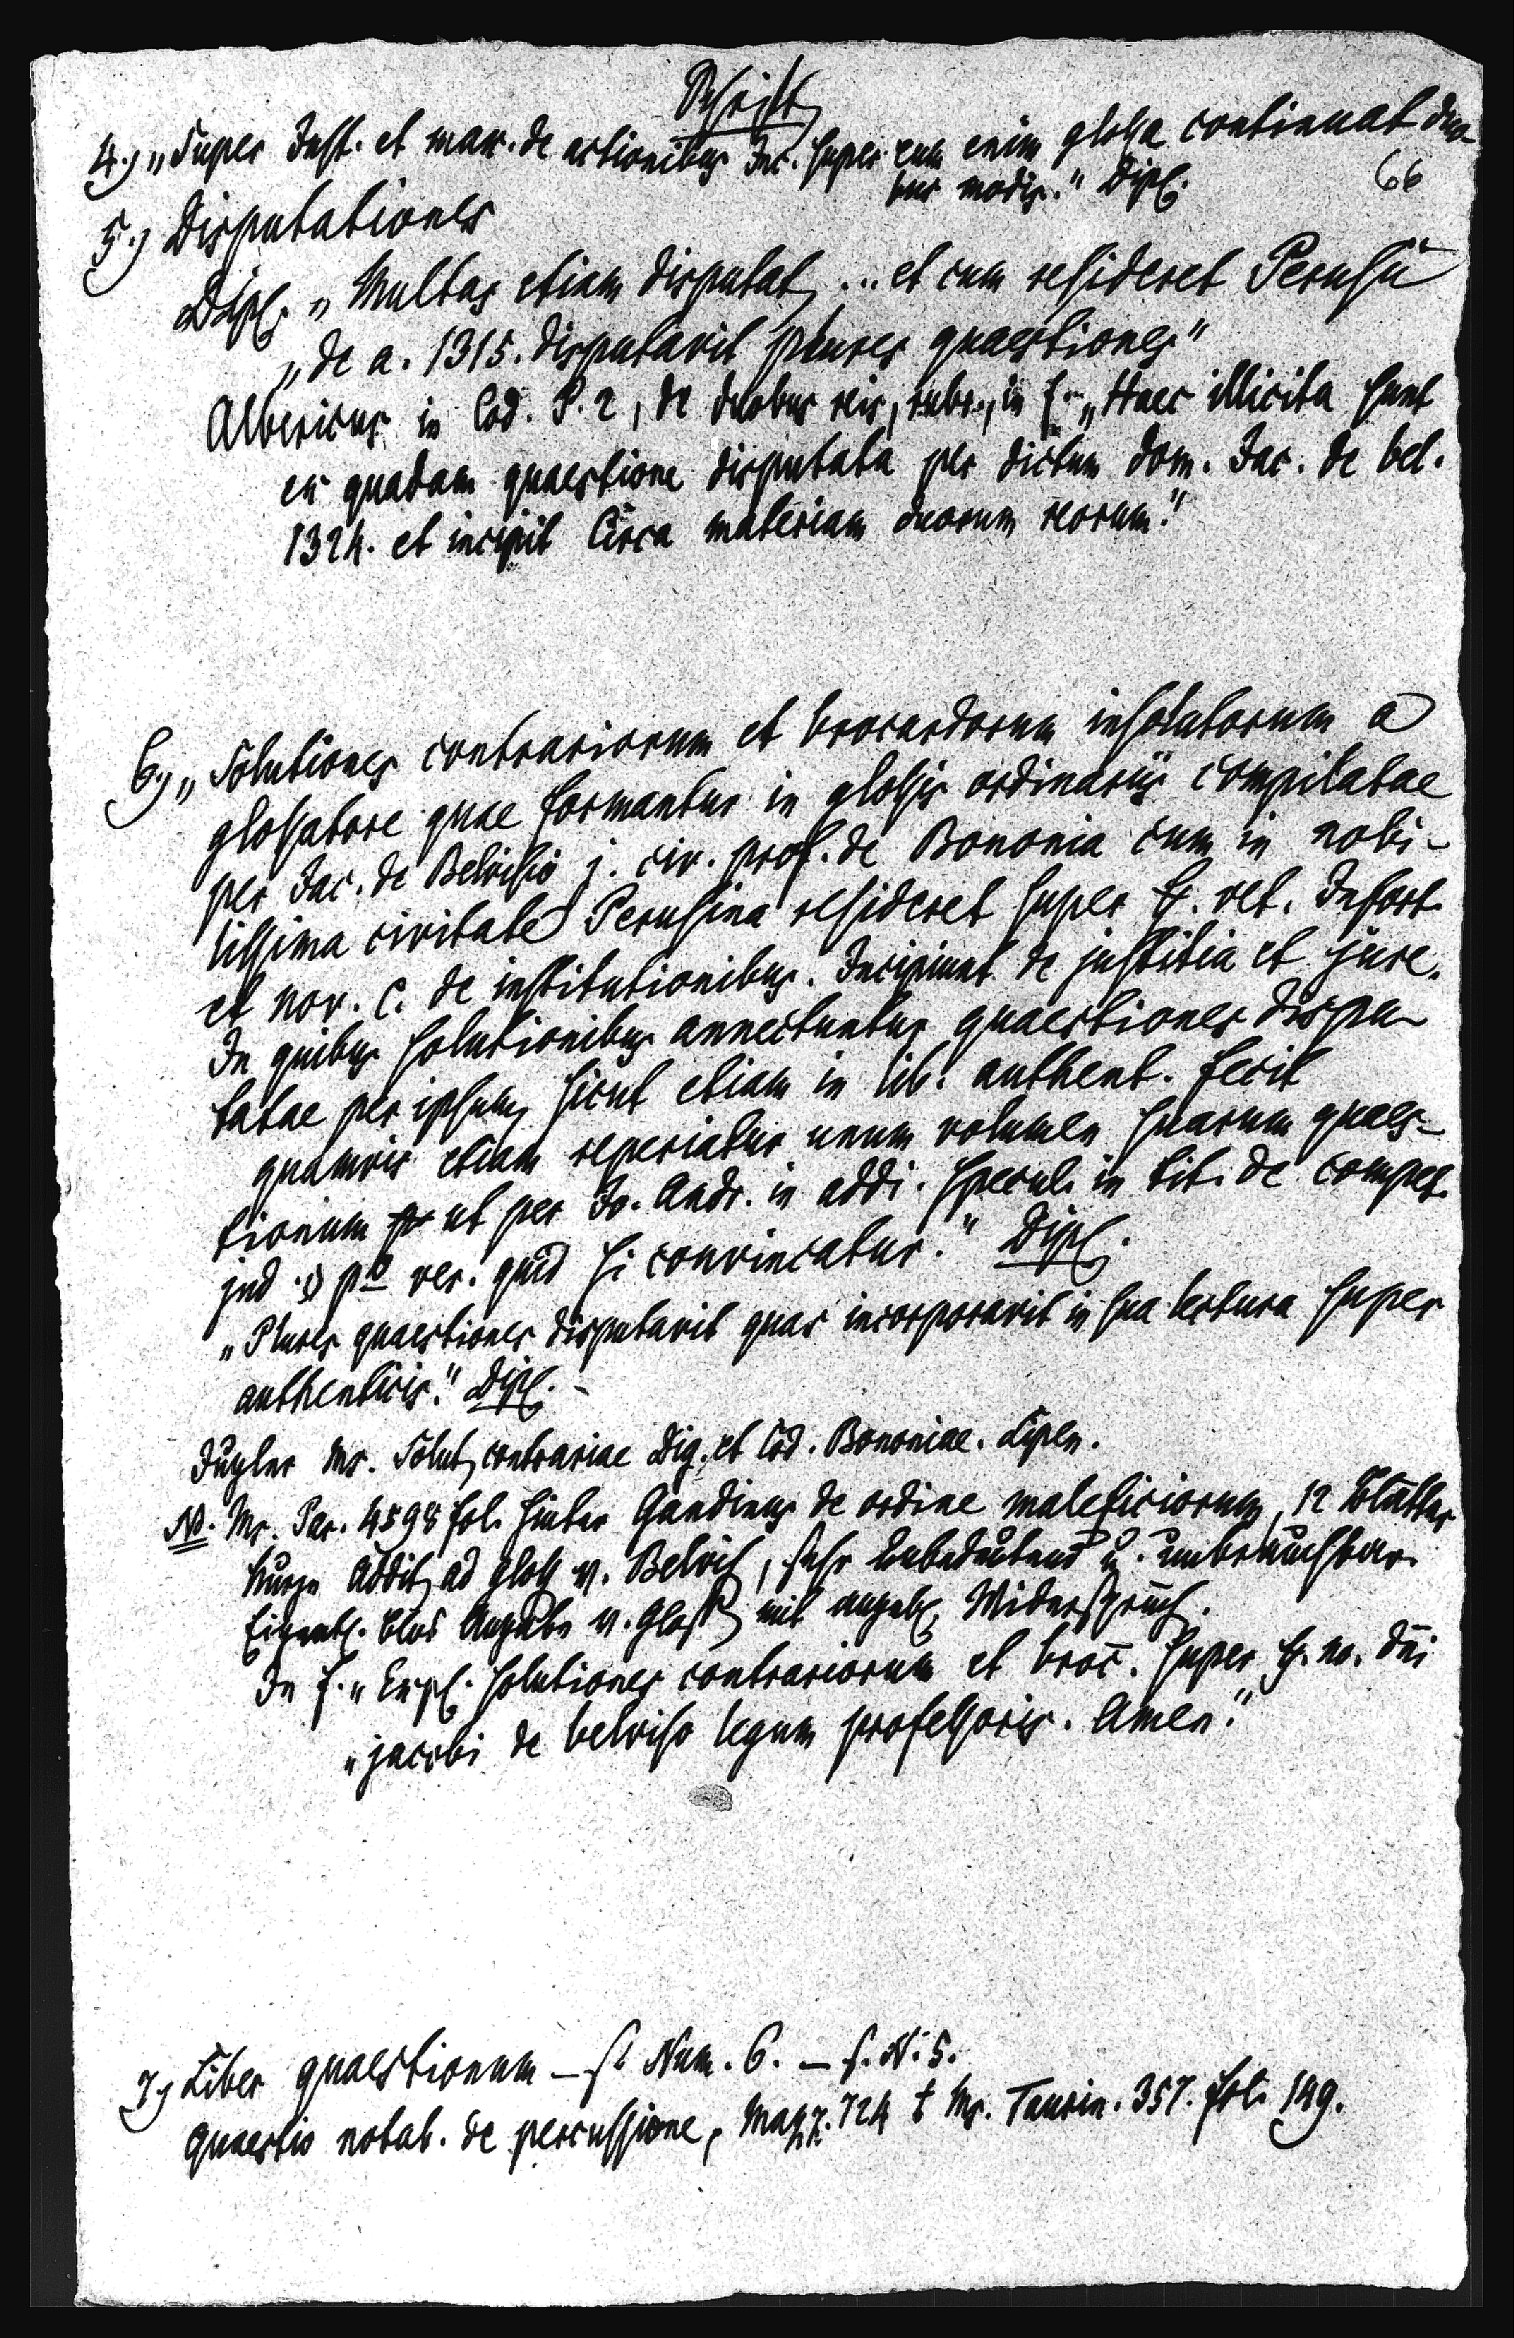 Schrift
4.) „Super Inst. et max. de actionibus Inc. super cum enim glossa continuat duo-
bus modis." Dipl.
66
5.) Disputationes
Dipl. „Multas etiam disputat, ... et cum resideret Perusii
„de a. 1315. disputavit plures quaestiones"
Albericus in Cod. P. 2, de duobus reis, rubr., in f. „Haec illicita sunt
ex quadam quaestione disputata per dictum dom. Jac. de bel.
1324. et incipit Circa materiam duorum reorum."
6.) „Solutiones contrariorum et brocardorum insolutorum a
glossatore quae formantur in glossis ordinariis compilatae
per Jac. de Belvisio j. civ. prof. de Bononia cum in nobi-
lissima civitate Perusina resideret super ff. vet. Infort.
et nov. C. de institutionibus. Incipiunt de justitia et jure.
In quibus solutionibus annectuntur quaestiones dispu-
tatae per ipsum, sicut etiam in lib. authent. fecit
quamvis etiam reperiatur unum volumen suarum quaes-
tionum ut per Jo. Andr. in addi. Specul. in tit. de compet.
jud. § p.º ver. quid si convincatur." Dipl.
„Plures quaestiones disputavit quas incorporavit in sua lectura super
authenticis." Dipl. -
Ms. Solut, contrariae Dig. et Cod. Bononiae. Lipen.
NB. Ms. Par. 4598 fol. hinter Gandinus de ordine maleficiorum, 12 Blätter
kurze Addit, ad Gloss v. Belvis, sehr unbedeutend u. unbrauchbar.
Eigentl. blos Angabe v. Gloss, mit angebl, Widerspruch.
In f. „Expl. solutiones contrariorum et broc̄. super ff. no. dn̄i
„jacobi de belviso legum professoris. Amen."
7.) Liber quaestionum — s. Num. 6. — s. N. 5.
Quaestio notab. de percussione, Mazz. 724 † Ms. Taurin. 357. fol. 149.